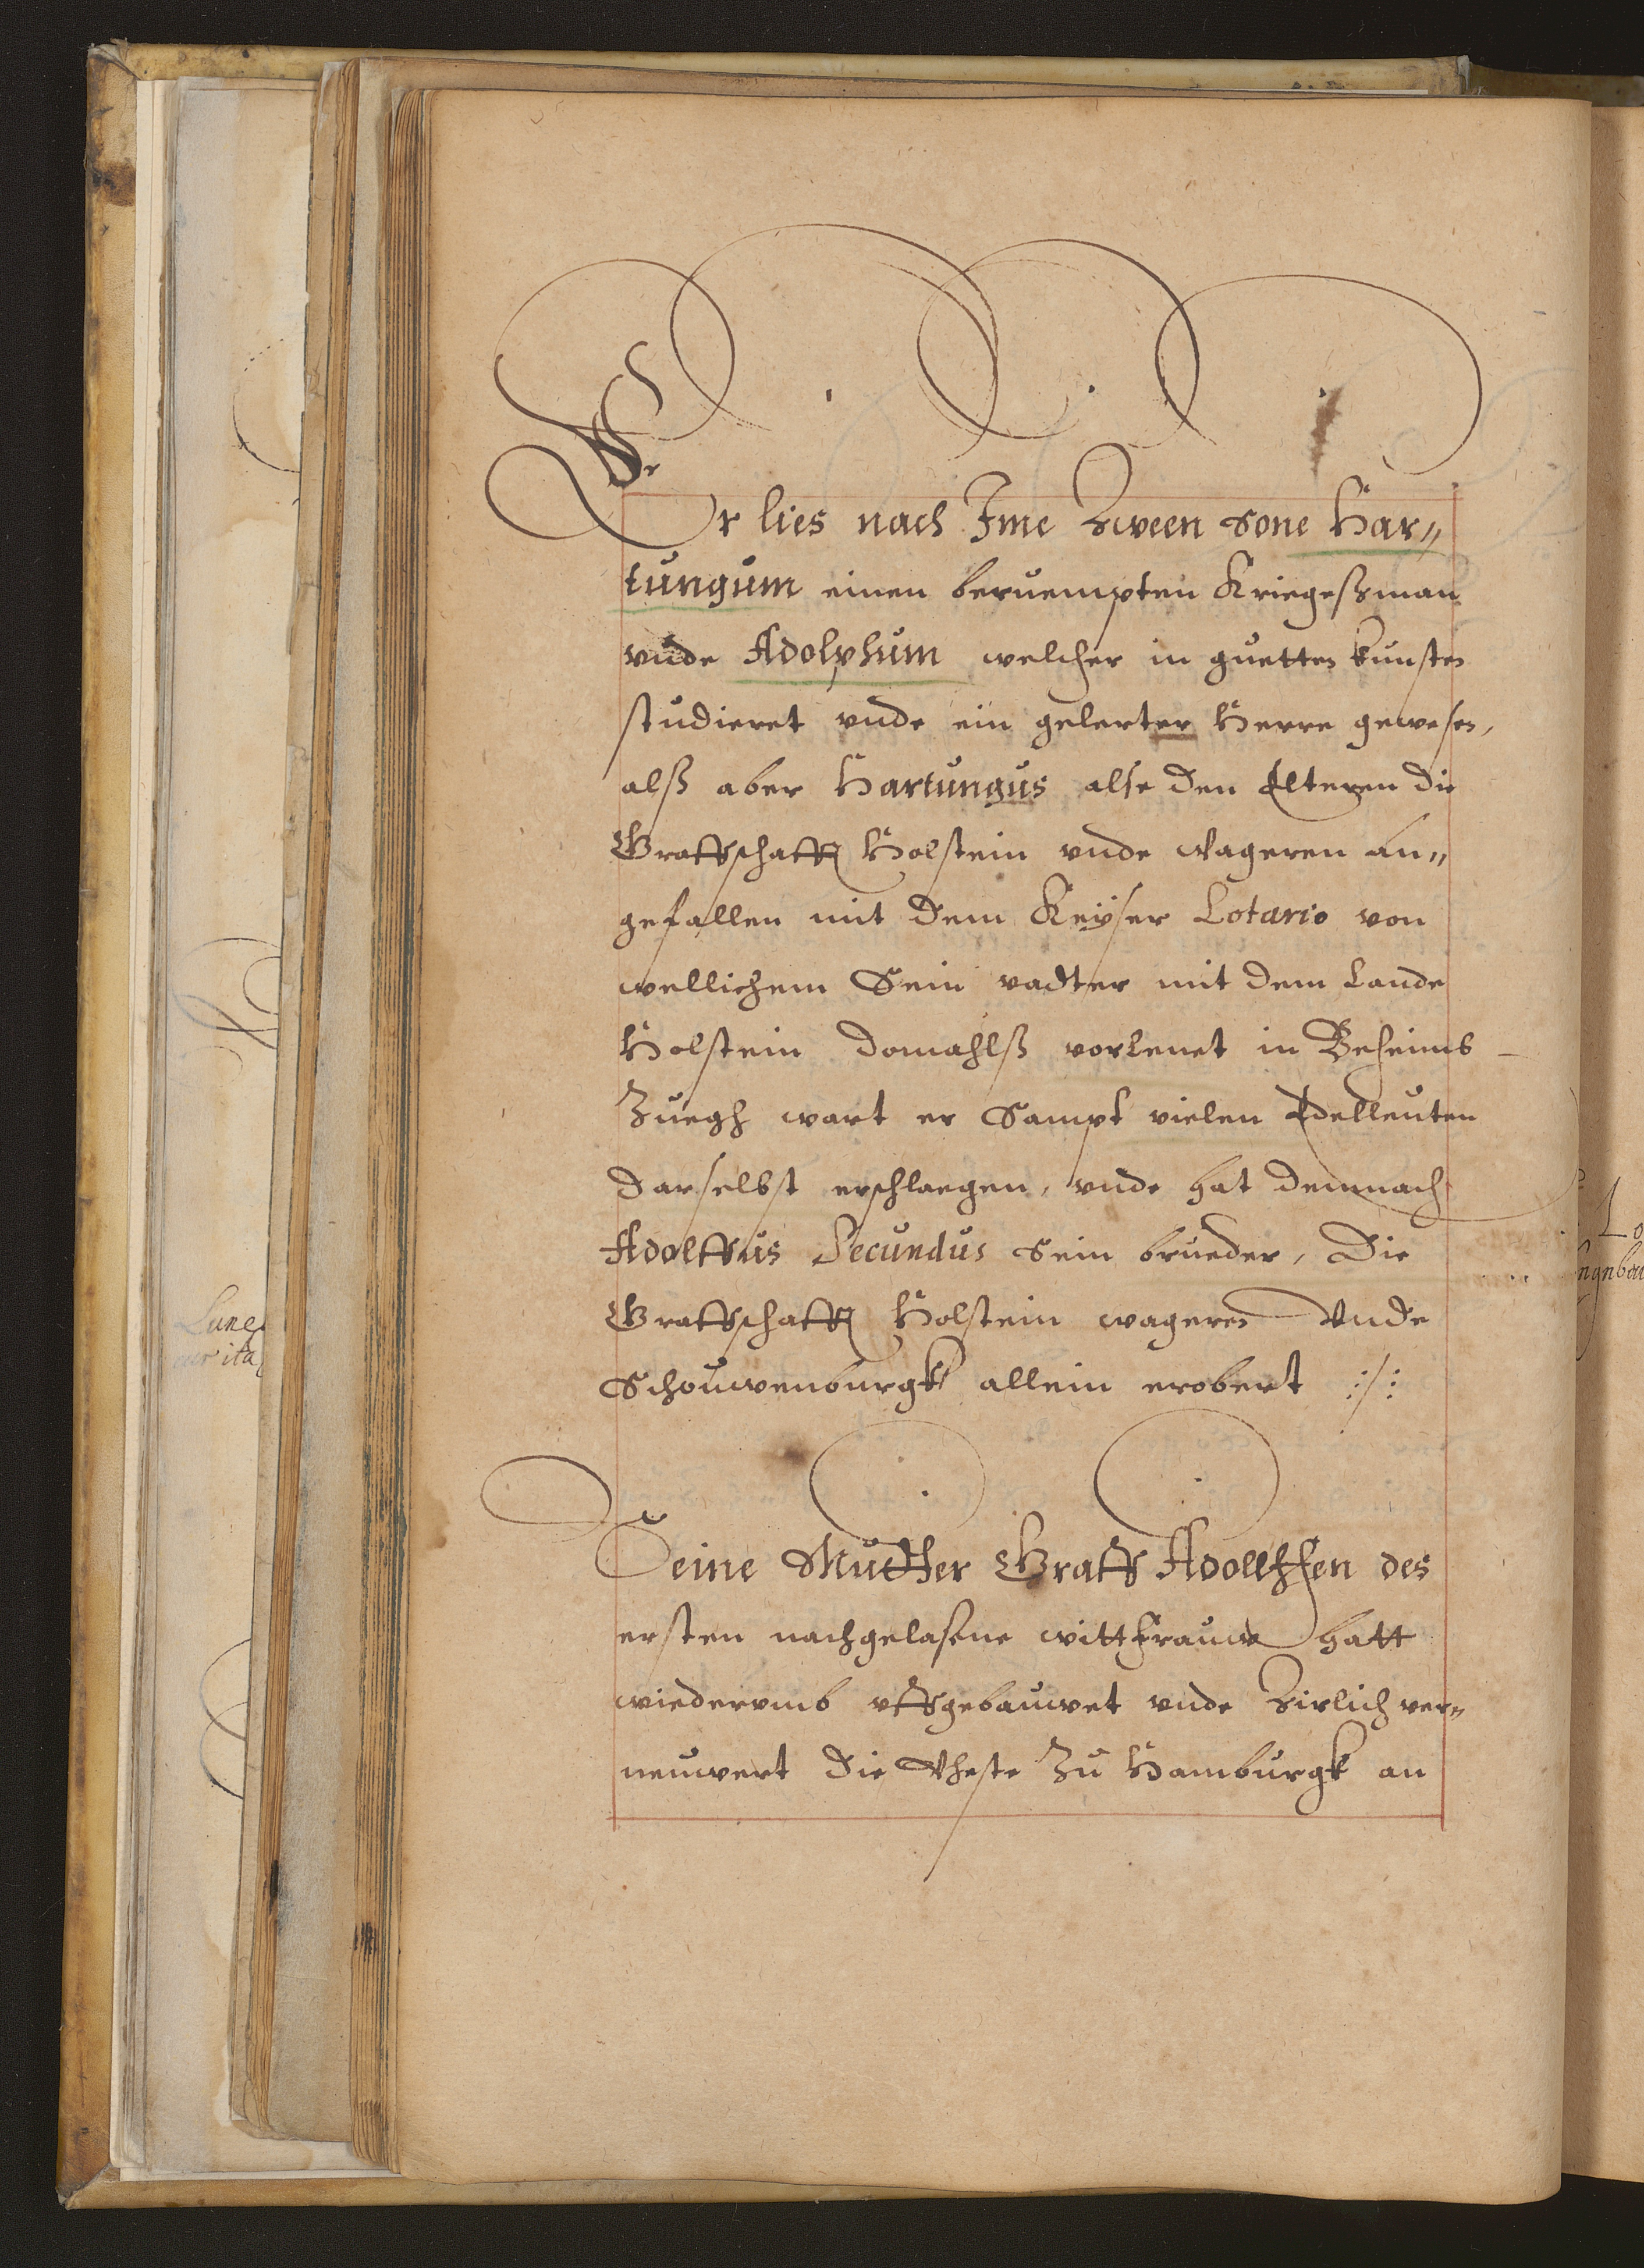 Er lies nach Ime Zween Sone Har„
tungum einen beruempten Kriegeßman
vnde Adolphum welcher in guetten kunsten
studieret vnde ein gelerter Herre gewesen,
alß aber Hartungus alse den Elteren die
Graffschafft Holstein vnde Wageren an„
gefallen mit dem Keyser Lotario von
wellichem Sein vadter mit dem Lande
Holstein domahlß vorlenet in Beheimb
Zuegh wart er Sampt vielen Edelleuten
darselbst erschlaegen, vnde hat demnach
Adolffus Secundus Sein brueder, Die
Graffschafft Holstein wageren Vnde
Schouwenburgk allein erobert :/:
Seine Mudtter Graff Adollffen des
ersten nachgelasene wittfrauwe hatt
wiederumb uffgebauwet vnde Zirlich ver„
neuwert die Vheste Zu Hamburgk an
Lune
ur ita
Lo
ngnbu